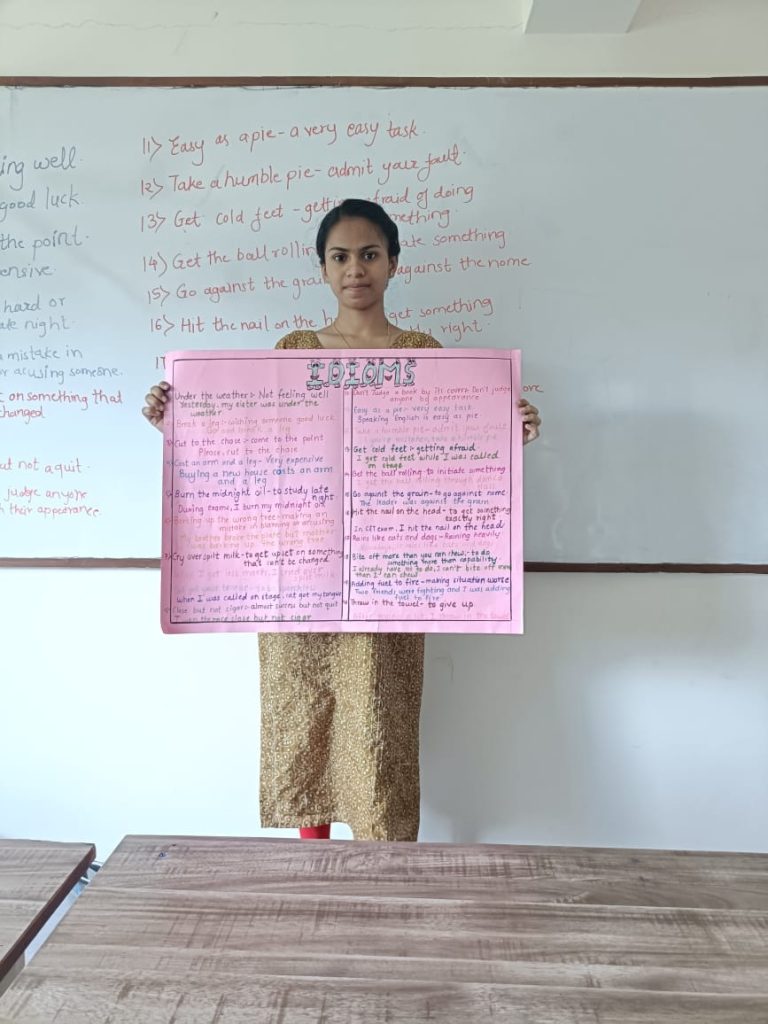 ing well.
good luck.
the point.
ensive.
hard or
night.
a mistake in
or accusing someone.
on something that
changed
but not a quit.
judge anyone
their appearance.
11) Easy as a pie - a very easy task.
12) Take a humble pie - admit your fault.
13) Get cold feet - getting afraid of doing
something
14) Get the ball rolling something
15) Go against the grain against the nome
16) Hit the nail on the get something
right.
17
IDIOMS
Under the weather :- Not feeling well
Yesterday, my sister was under the
weather
Break a leg :- wishing someone good luck
Go and break a leg
Cut to the chase :- come to the point
Please, cut to the chase
Cost an arm and a leg - Very expensive
Buying a new house costs an arm
and a leg
Burn the midnight oil - to study late
night
During exams, I burn my midnight oil
Barking up the wrong tree - making an
mistake in blaming or accusing
My brother broke the plate, but mother
was barking up the wrong tree
Cry over spilt milk - to get upset on something
that can't be changed
When I got less marks, I cried over
when I was called on stage, cat got my tongue
Close but not cigar :- almost success but not quit
I won the race close but not cigar
Don't Judge a book by its cover :- Don't judge
anyone by appearance
Easy as a pie :- very easy task
Speaking English is easy as pie.
Take a humble pie - admit your fault
Get cold feet :- getting afraid.
I got cold feet while I was called
on stage
Get the ball rolling - to initiate something
I got the ball rolling through dance
class
Go against the grain - to go against nome
The leader was against the grain
Hit the nail on the head - to get something
exactly right
In CET exam, I hit the nail on the head
Rains like cats and dogs - Raining heavily
Bite off more than you can chew - to do
something more than capability
I already have to do, I can't bite off more
than I can chew
Adding fuel to fire - making situation worse
Two friends were fighting and I was adding
fuel to fire
Throw in the towel - to give up.